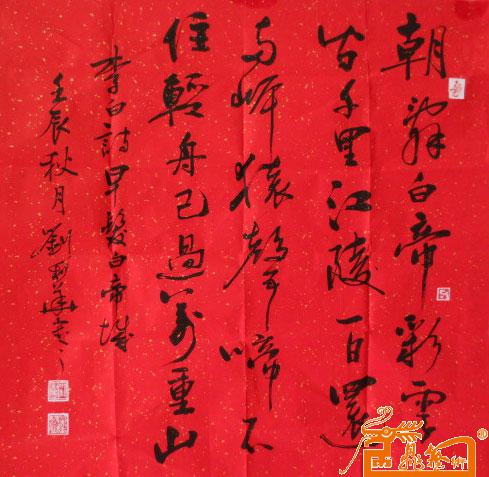 朝辞白帝彩雲
间千里江陵一日還
两岸猿聲啼不
住輕舟已過萬重山
李白詩早髮白帝城
壬辰秋月劉